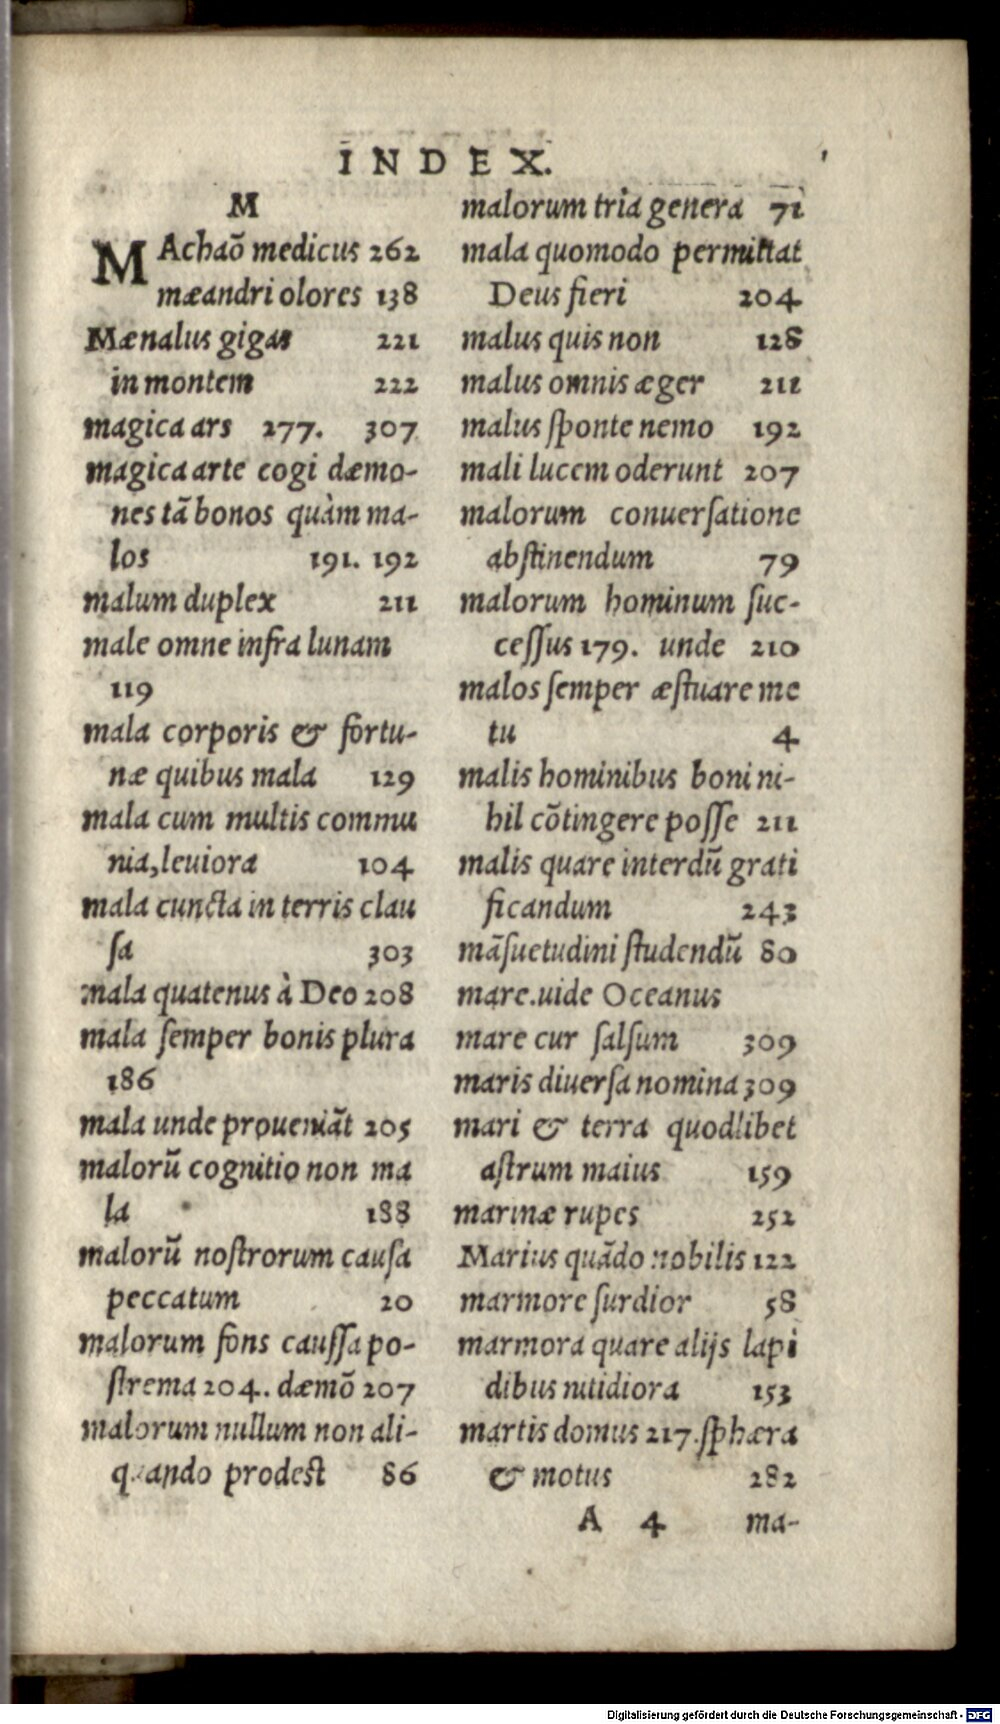 INDEX.
M
MAchaõ medicus 262
mæandri olores 138
Mænalus gigas 221
in montem 222
magica ars 277. 307
magica arte cogi dæmo-
nes tã bonos quàm ma-
los 191. 192
malum duplex 211
male omne infra lunam
119
mala corporis & fortu-
næ quibus mala 129
mala cum multis commu
nia, leuiora 104
mala cuncta in terris clau
ſa 303
mala quatenus à Deo 208
mala ſemper bonis plura
186
mala unde proueniãt 205
malorũ cognitio non ma
la 188
malorũ noſtrorum cauſa
peccatum 20
malorum fons cauſſa po-
ſtrema 204. dæmõ 207
malorum nullum non ali-
quando prodeſt 86
malorum tria genera 71
mala quomodo permittat
Deus fieri 204
malus quis non 128
malus omnis æger 211
malus ſponte nemo 192
mali lucem oderunt 207
malorum conuerſatione
abſtinendum 79
malorum hominum ſuc-
ceſſus 179. unde 210
malos ſemper æſtuare me
tu 4
malis hominibus boni ni-
hil cõtingere poſſe 211
malis quare interdũ grati
ficandum 243
mãſuetudini ſtudendũ 80
mare. uide Oceanus
mare cur ſalſum 309
maris diuerſa nomina 309
mari & terra quodlibet
aſtrum maius 159
marinæ rupes 252
Marius quãdo nobilis 122
marmore ſurdior 58
marmora quare alijs lapi
dibus nitidiora 153
martis domus 217. ſphæra
& motus 282
A 4 ma-
Digitalisierung gefördert durch die Deutsche Forschungsgemeinschaft - DFG